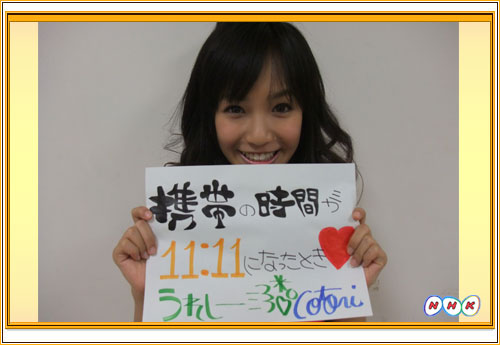 携帯の時間が
11:11になったとき
うれしー Cotori
NHK